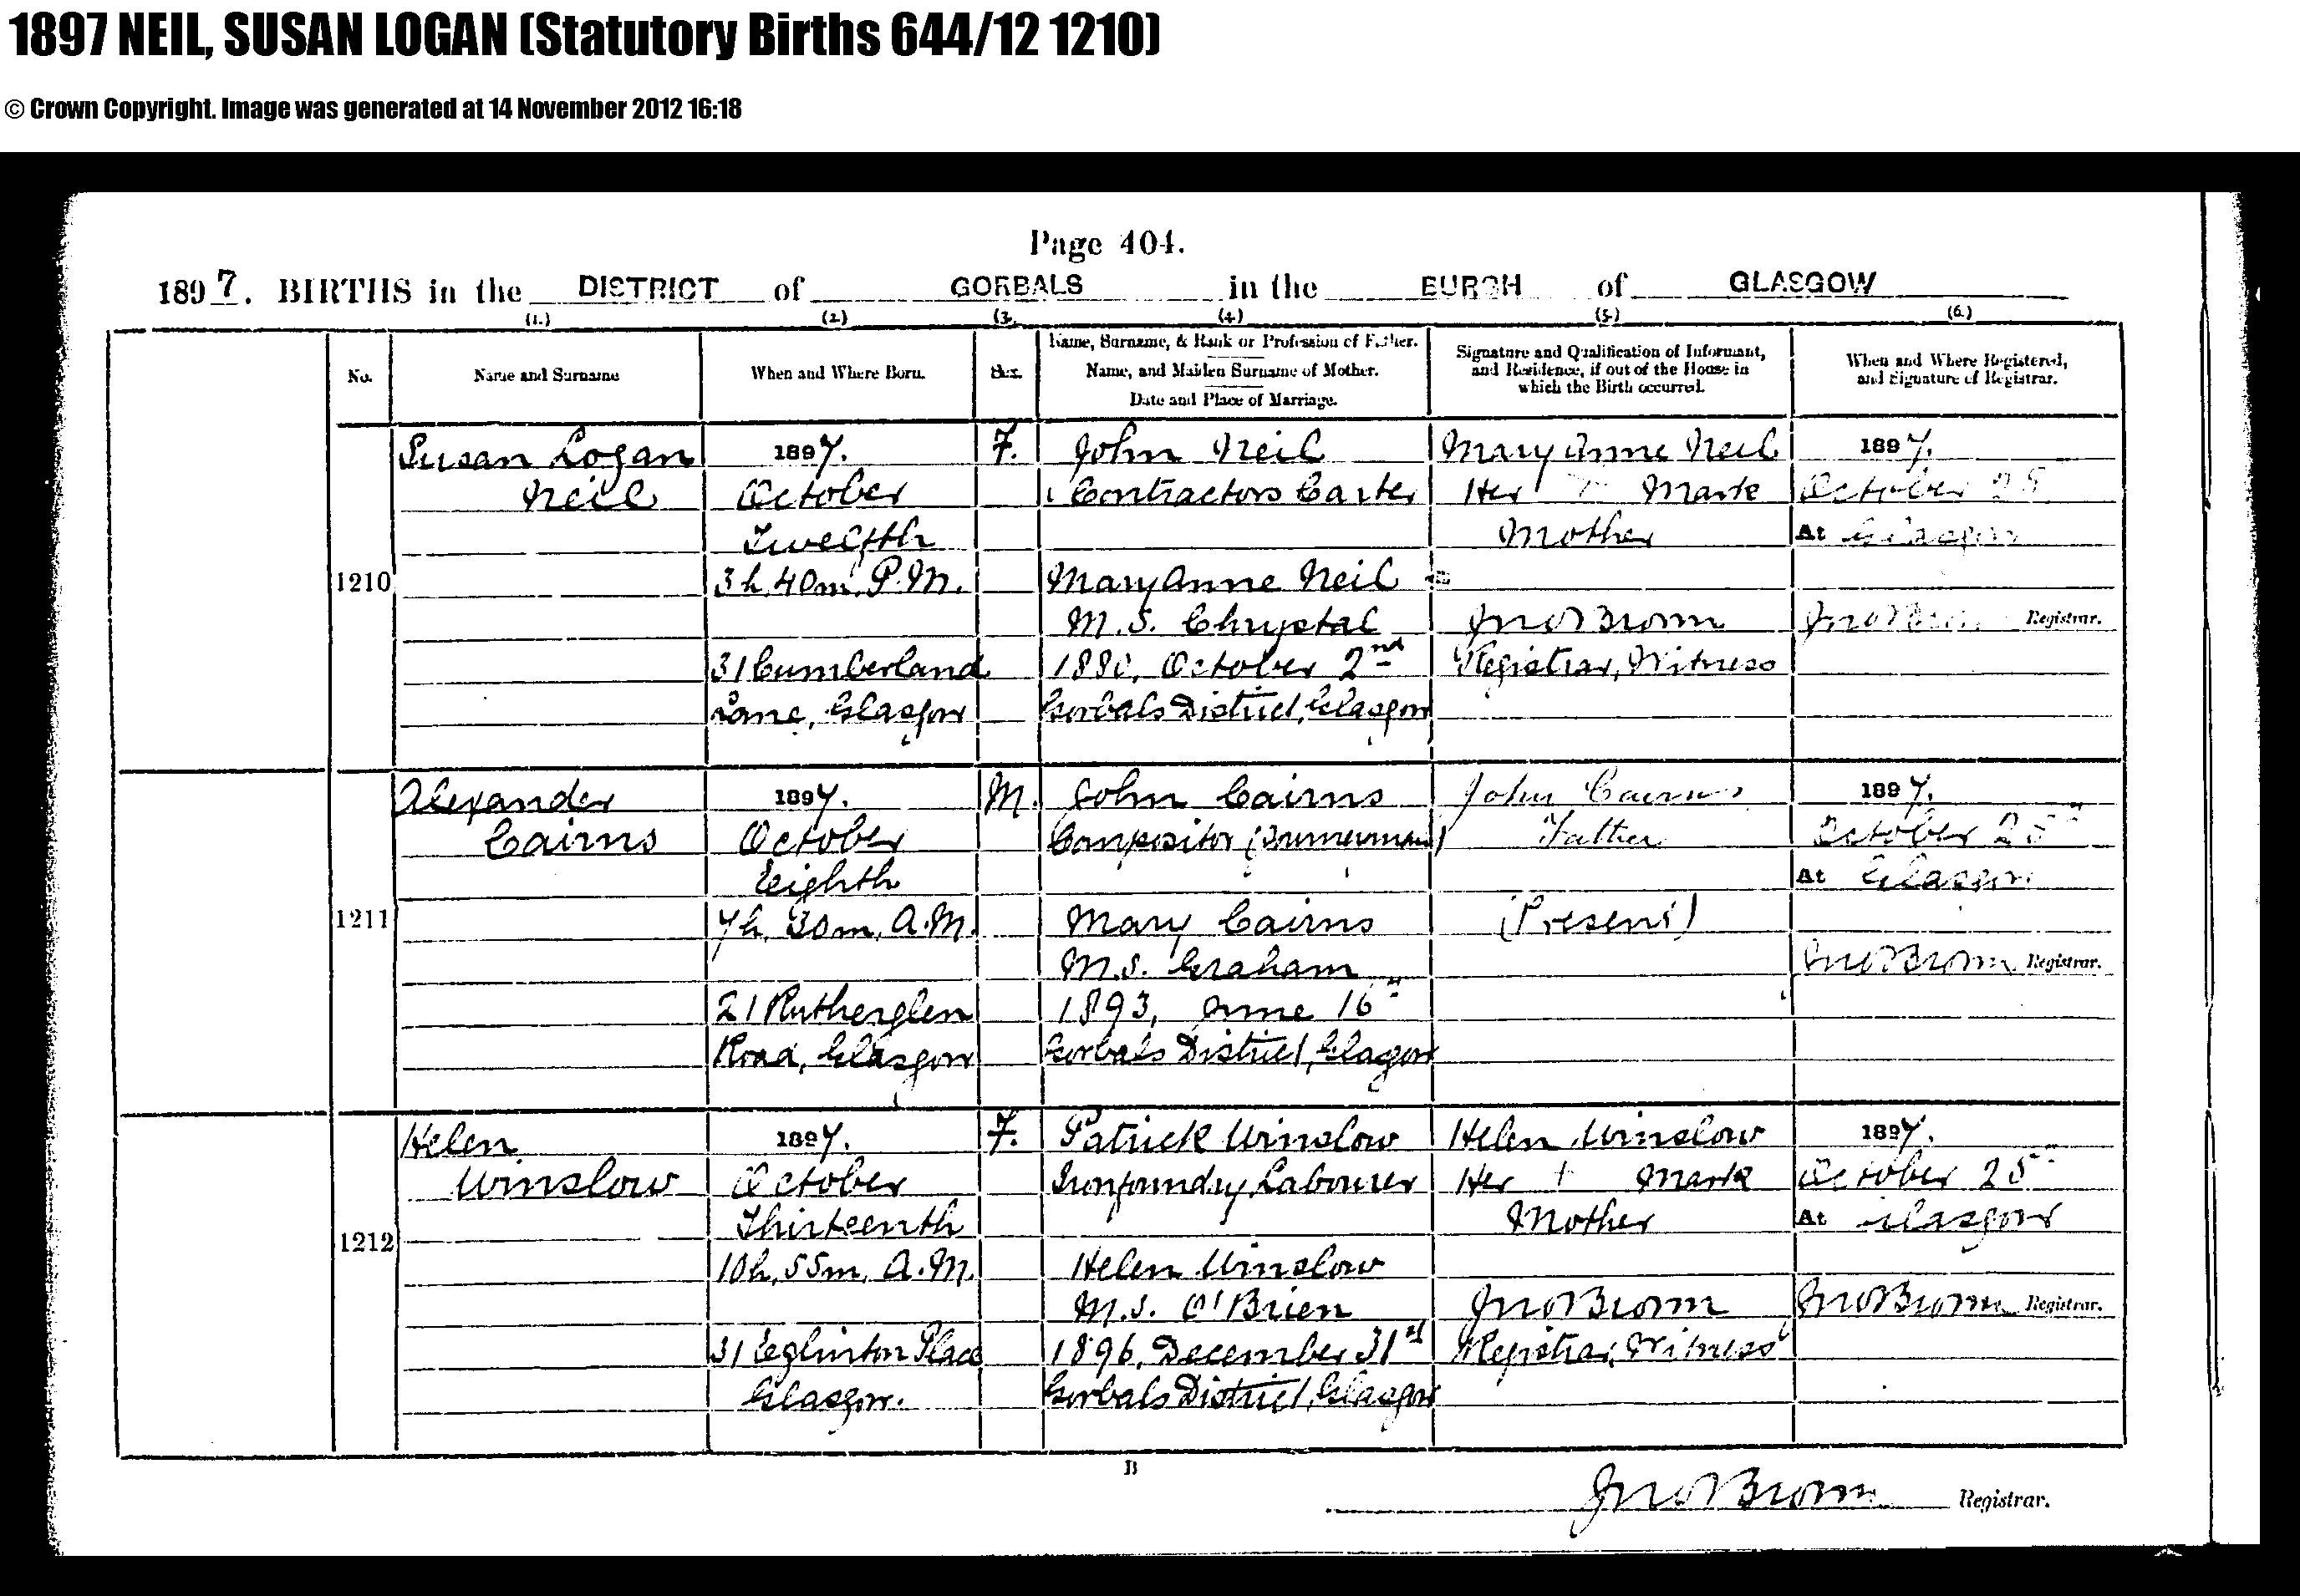 1897 NEIL, SUSAN LOGAN (Statutory Births 644/12 1210)
© Crown Copyright. Image was generated at 14 November 2012 16:18
Page 404.
1897. BIRTHS in the DISTRICT of GORBALS in the BURGH of GLASGOW
(1.) (2.) (3. (4.) (5.) (6.)
No.
Name and Surname
When and Where Born.
Sex.
Name, Surname, & Rank or Profession of Father.
Name, and Maiden Surname of Mother.
Date and Place of Marriage.
Signature and Qualification of Informant,
and Residence, if out of the House in
which the Birth occurred.
When and Where Registered,
and Signature of Registrar.
1210
Susan Logan
Neil
1897.
October
Twelfth
3h. 40m. P.M.
31 Cumberland
Lane, Glasgow
F.
John Neil
Contractors Carter
Mary Anne Neil
M.S. Chrystal
October 2nd
Gorbals District, Glasgow
Mary Anne Neil
Her Mark
Mother
Jno Brown
Registrar, Witness
1897.
October
At Glasgow
Jno Brown Registrar.
1211
Alexander
Cairns
1897.
October
Eighth
7h. 30m. A.M.
21 Rutherglen
Road, Glasgow
M.
John Cairns
Compositor (Journeyman)
Mary Cairns
M.S. Graham
1893, June 16th
Gorbals District, Glagow
John Cairns
Father
(Present)
1897.
October 25th
At Glasgow
Jno Brown Registrar.
1212
Helen
Winslow
1897.
October
Thirteenth
10h. 55m. A.M.
31 Eglinton Place
Glasgow.
F.
Patrick Winslow
Ironfoundry Labourer
Helen Winslow
M.S. O'Brien
1896, December 31st
Gorbals District, Glasgow
Helen Winslow
Her + Mark
Mother
Jno Brown
Registrar, Witness
1897.
October 25th
At Glasgow
Jno Brown Registrar.
B
Jno Brown Registrar.